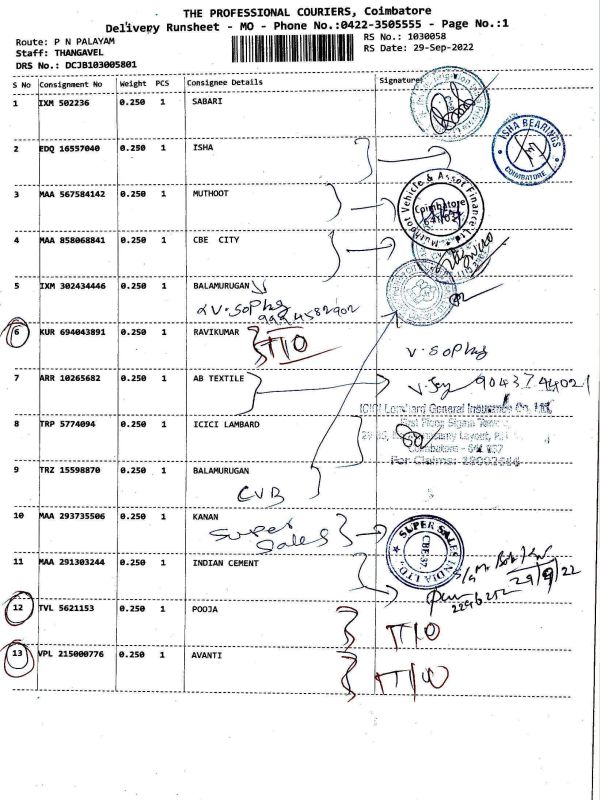 THE PROFESSIONAL COURIERS, Coimbatore
Delivery Runsheet - MO - Phone No.:0422-3505555 - Page No.:1
Route: P N PALAYAM
Staff: THANGAVEL
DRS No.: DCJB103005801
RS No.: 1030058
RS Date: 29-Sep-2022
S No Consignment No Weight PCS Consignee Details Signature
1 IXM 502236 0.250 1 SABARI
2 EDQ 16557040 0.250 1 ISHA
ISHA BEARINGS
COIMBATORE
3 MAA 567584142 0.250 1 MUTHOOT
Muthoot Vehicle & Asset Finance Ltd.
Coimbatore
4 MAA 858068841 0.250 1 CBE CITY
5 IXM 302434446 0.250 1 BALAMURUGAN
6 KUR 694043891 0.250 1 RAVIKUMAR
7 ARR 10265682 0.250 1 AB TEXTILE
ICICI Lombard General Insurance Co. Ltd.
8 TRP 5774094 0.250 1 ICICI LAMBARD
9 TRZ 15598870 0.250 1 BALAMURUGAN
CVB
10 MAA 293735506 0.250 1 KANAN
Super
Sales
SUPER SALES INDIA LTD
CBE-37
11 MAA 291303244 0.250 1 INDIAN CEMENT
29/9/22
12 TVL 5621153 0.250 1 POOJA
13 VPL 215000776 0.250 1 AVANTI